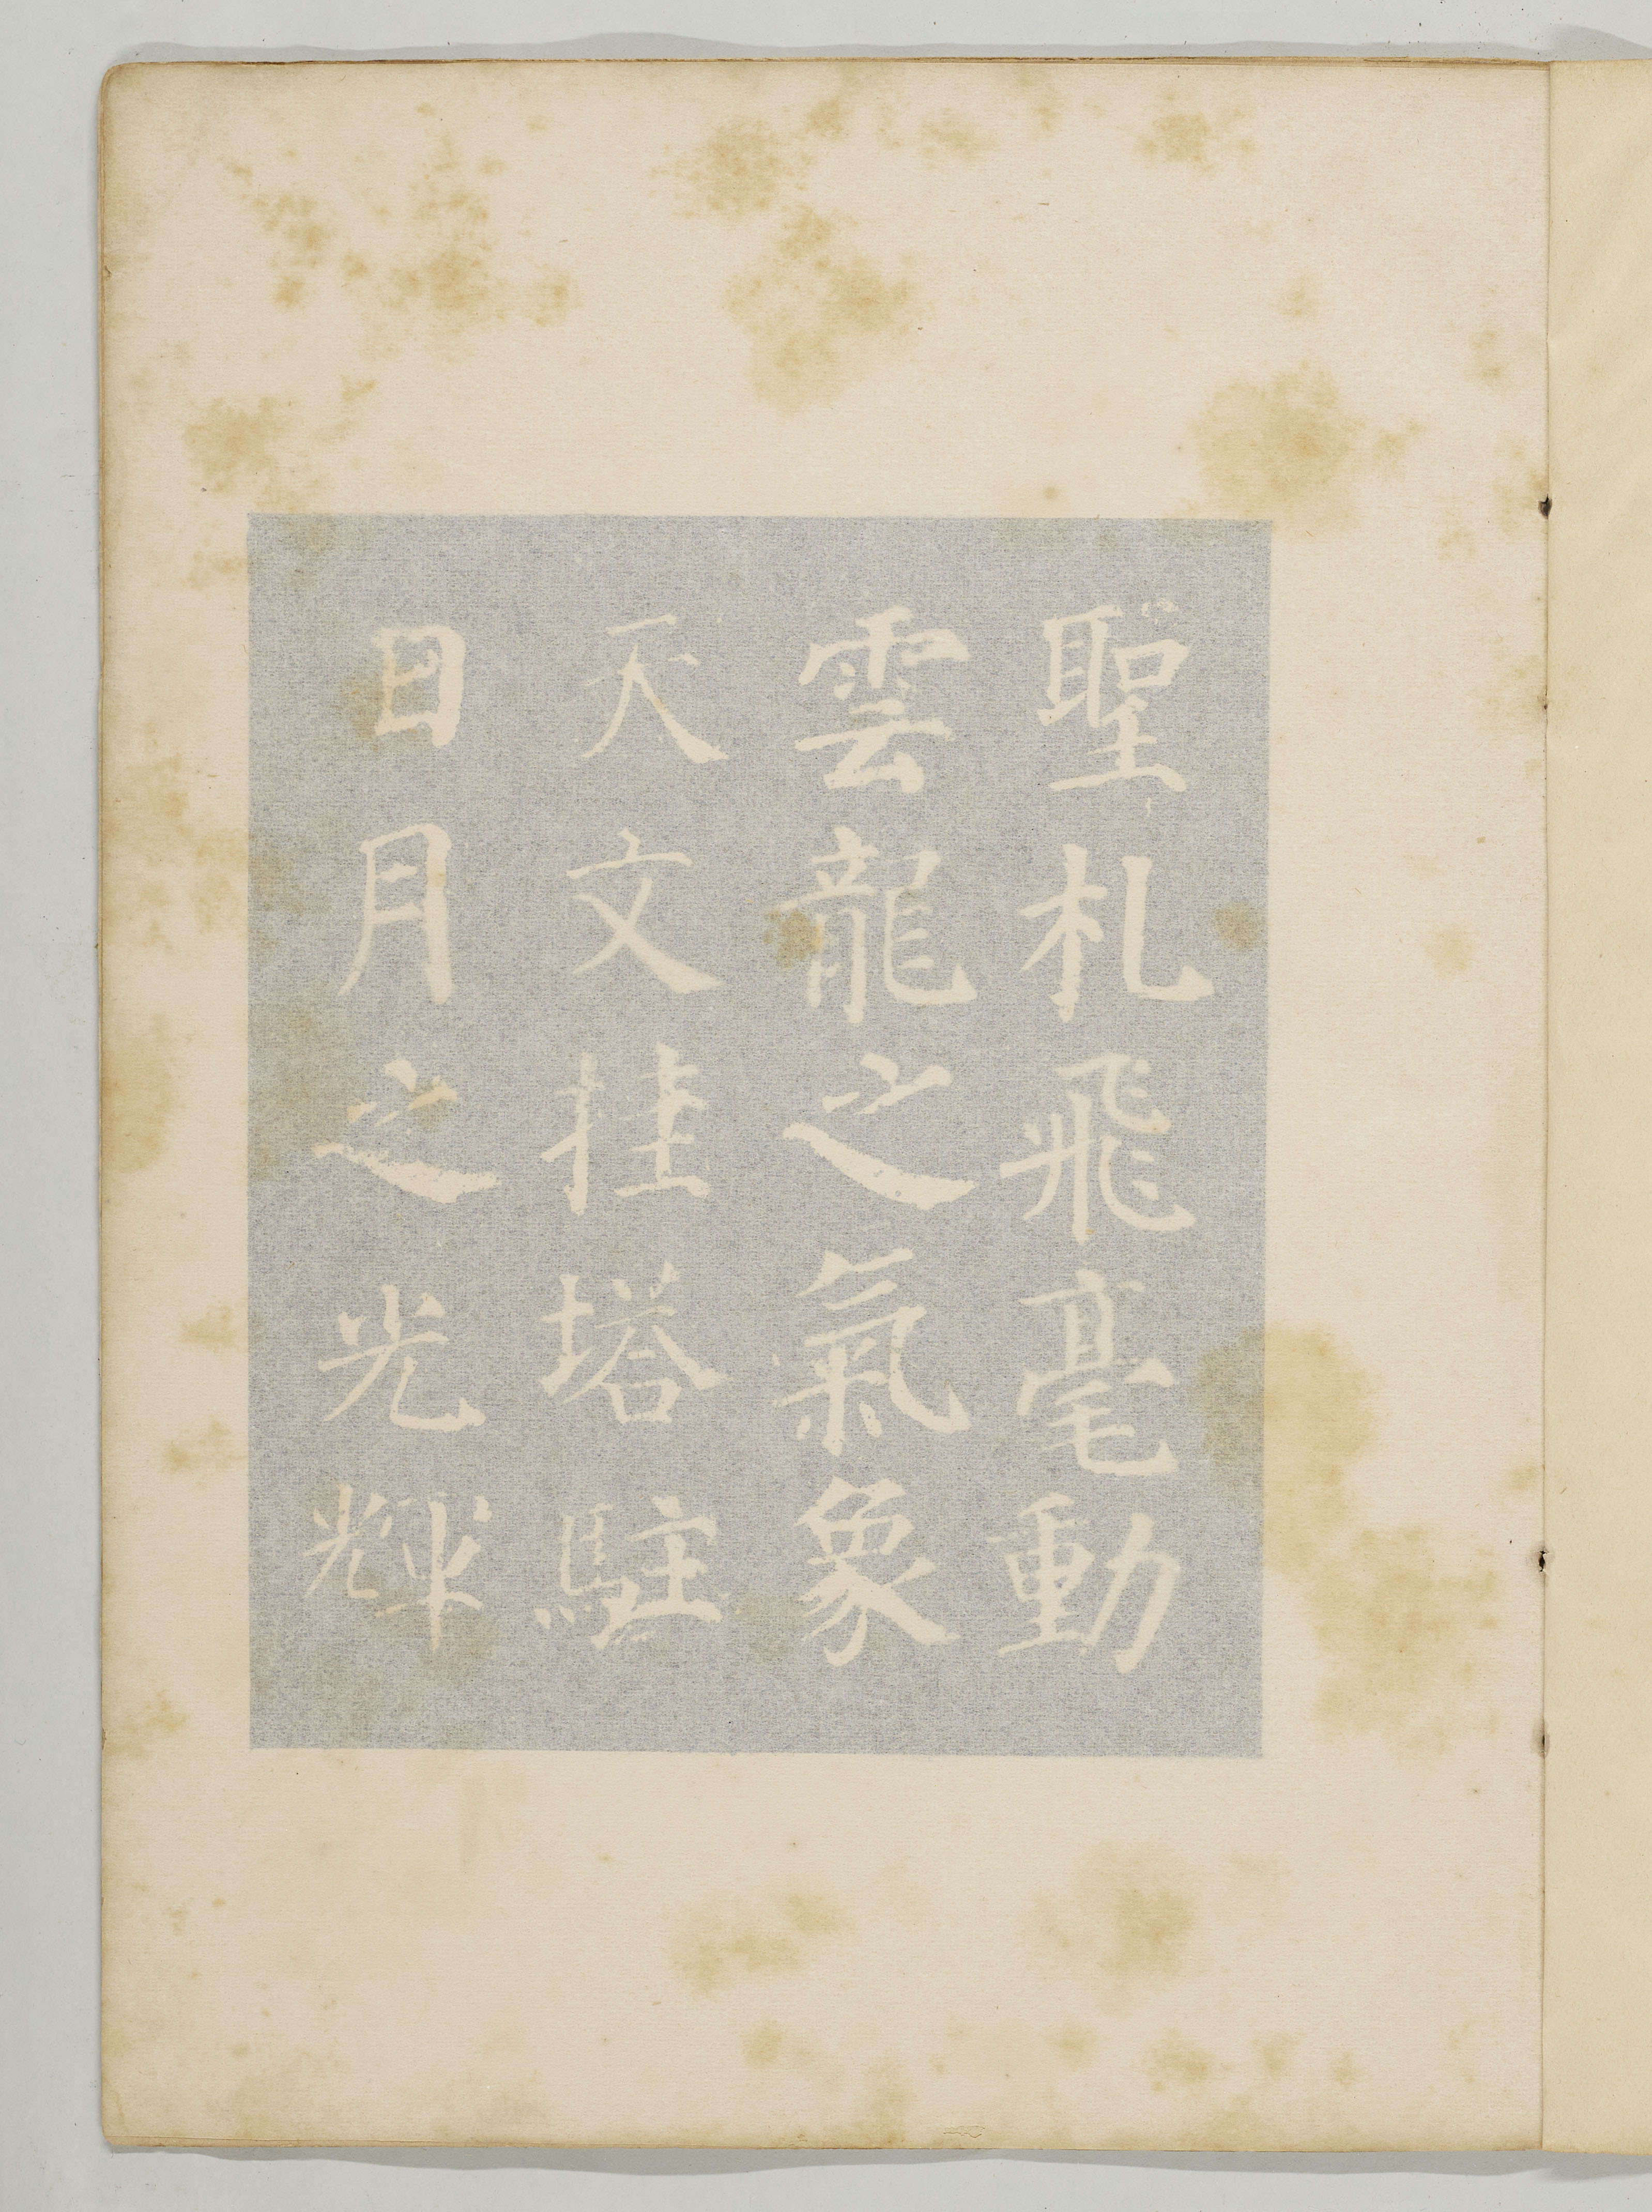 聖札飛毫動
雲龍之氣象
天文挂塔駐
日月之光輝